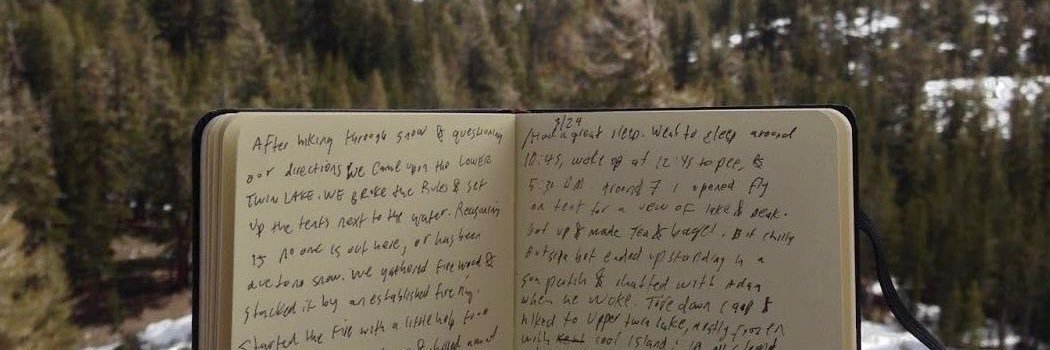 After hiking through snow & questioning
our directions we came upon the LOWER
TWIN LAKE. WE BROKE the Rules & set
up the tents next to the water. Reasoning
is no one is out here, or has been
due to no snow. We gathered fire wood &
stacked it by an established fire ring.
Started the fire with a little help from
3/29
Had a great sleep. Went to sleep around
10:45, woke up at 12:45 to pee, &
5:30 AM around 7 I opened fly
on tent for a view of lake & peak.
Got up & made Tea & bagel. Bit chilly
outside but ended up standing in a
sun patch & chatted with Adam
when he woke. Tore down camp &
hiked to Upper twin lake, mostly frozen
with cool island